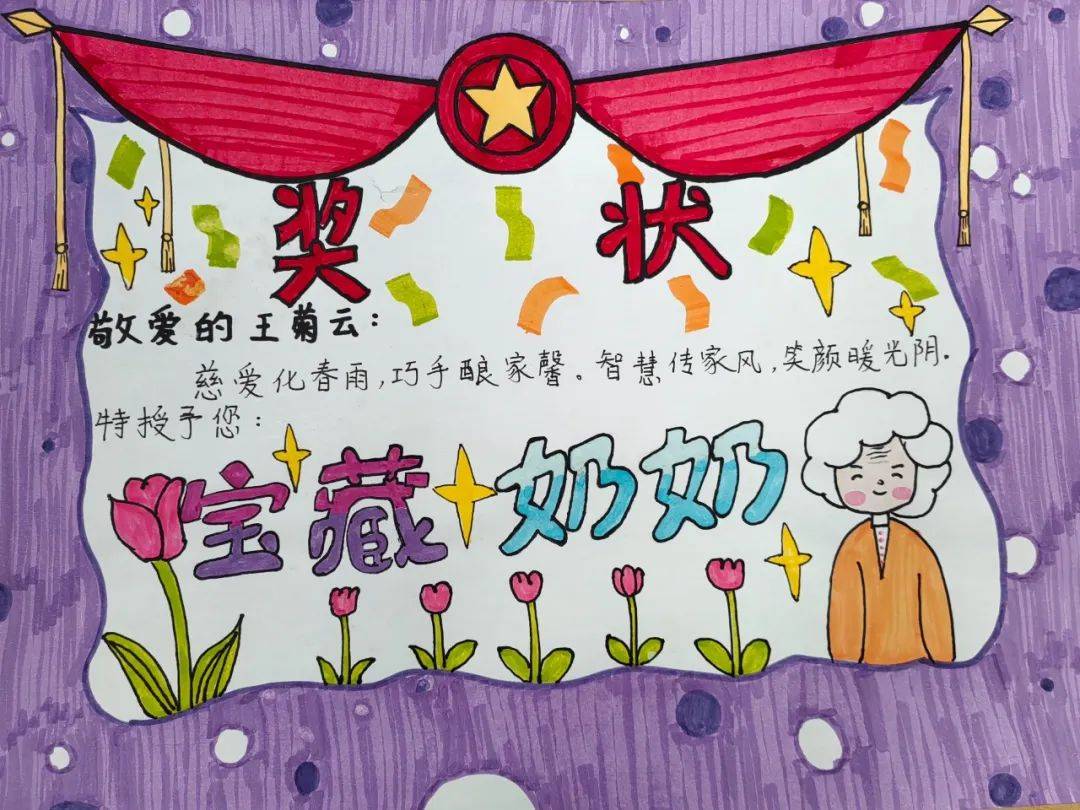 奖状
敬爱的王菊云：
慈爱化春雨，巧手酿家馨。智慧传家风，笑颜暖光阴.
特授予您：
宝藏奶奶